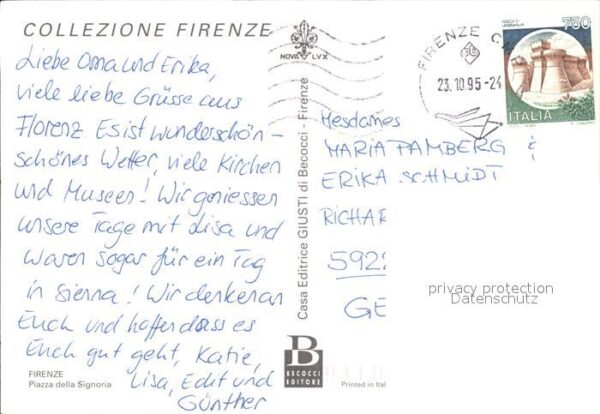 COLLEZIONE FIRENZE
Liebe Oma und Erika,
viele liebe Grüsse aus
Florenz Es ist wunderschön –
schönes Wetter, viele Kirchen
und Museen! Wir geniessen
unsere Tage mit Lisa und
waren sogar für ein Tag
in Sienna! Wir denken an
Euch und hoffen dass es
Euch gut geht, Katie,
Lisa, Edit und
Günther
FIRENZE
Piazza della Signoria
NOVA LVX
Casa Editrice GIUSTI di Becocci - Firenze
B
BECOCCI
EDITORE
FIRENZE
23.10.95-24
750
ITALIA
Mesdames
MARIA PAMBERG &
ERIKA SCHMIDT
RICHAR
592
GE
privacy protection
Datenschutz
Printed in Ital